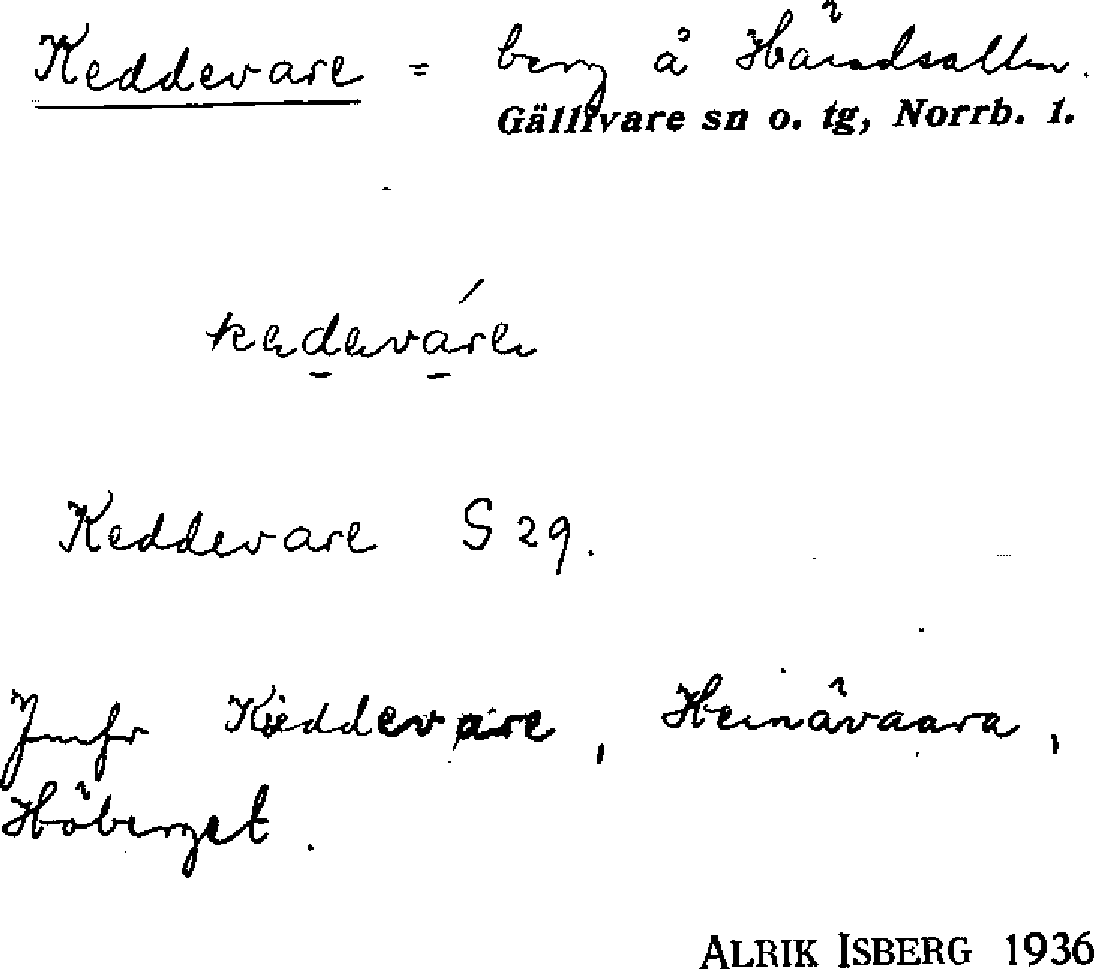 Keddevare = berg å Häradsallm.
Gällivare sn o. tg, Norrb. l.
kedeváre
Keddevare S 29.
Jmfr Kieddevare, Heinävaara,
Höberget.
ALRIK ISBERG 1936